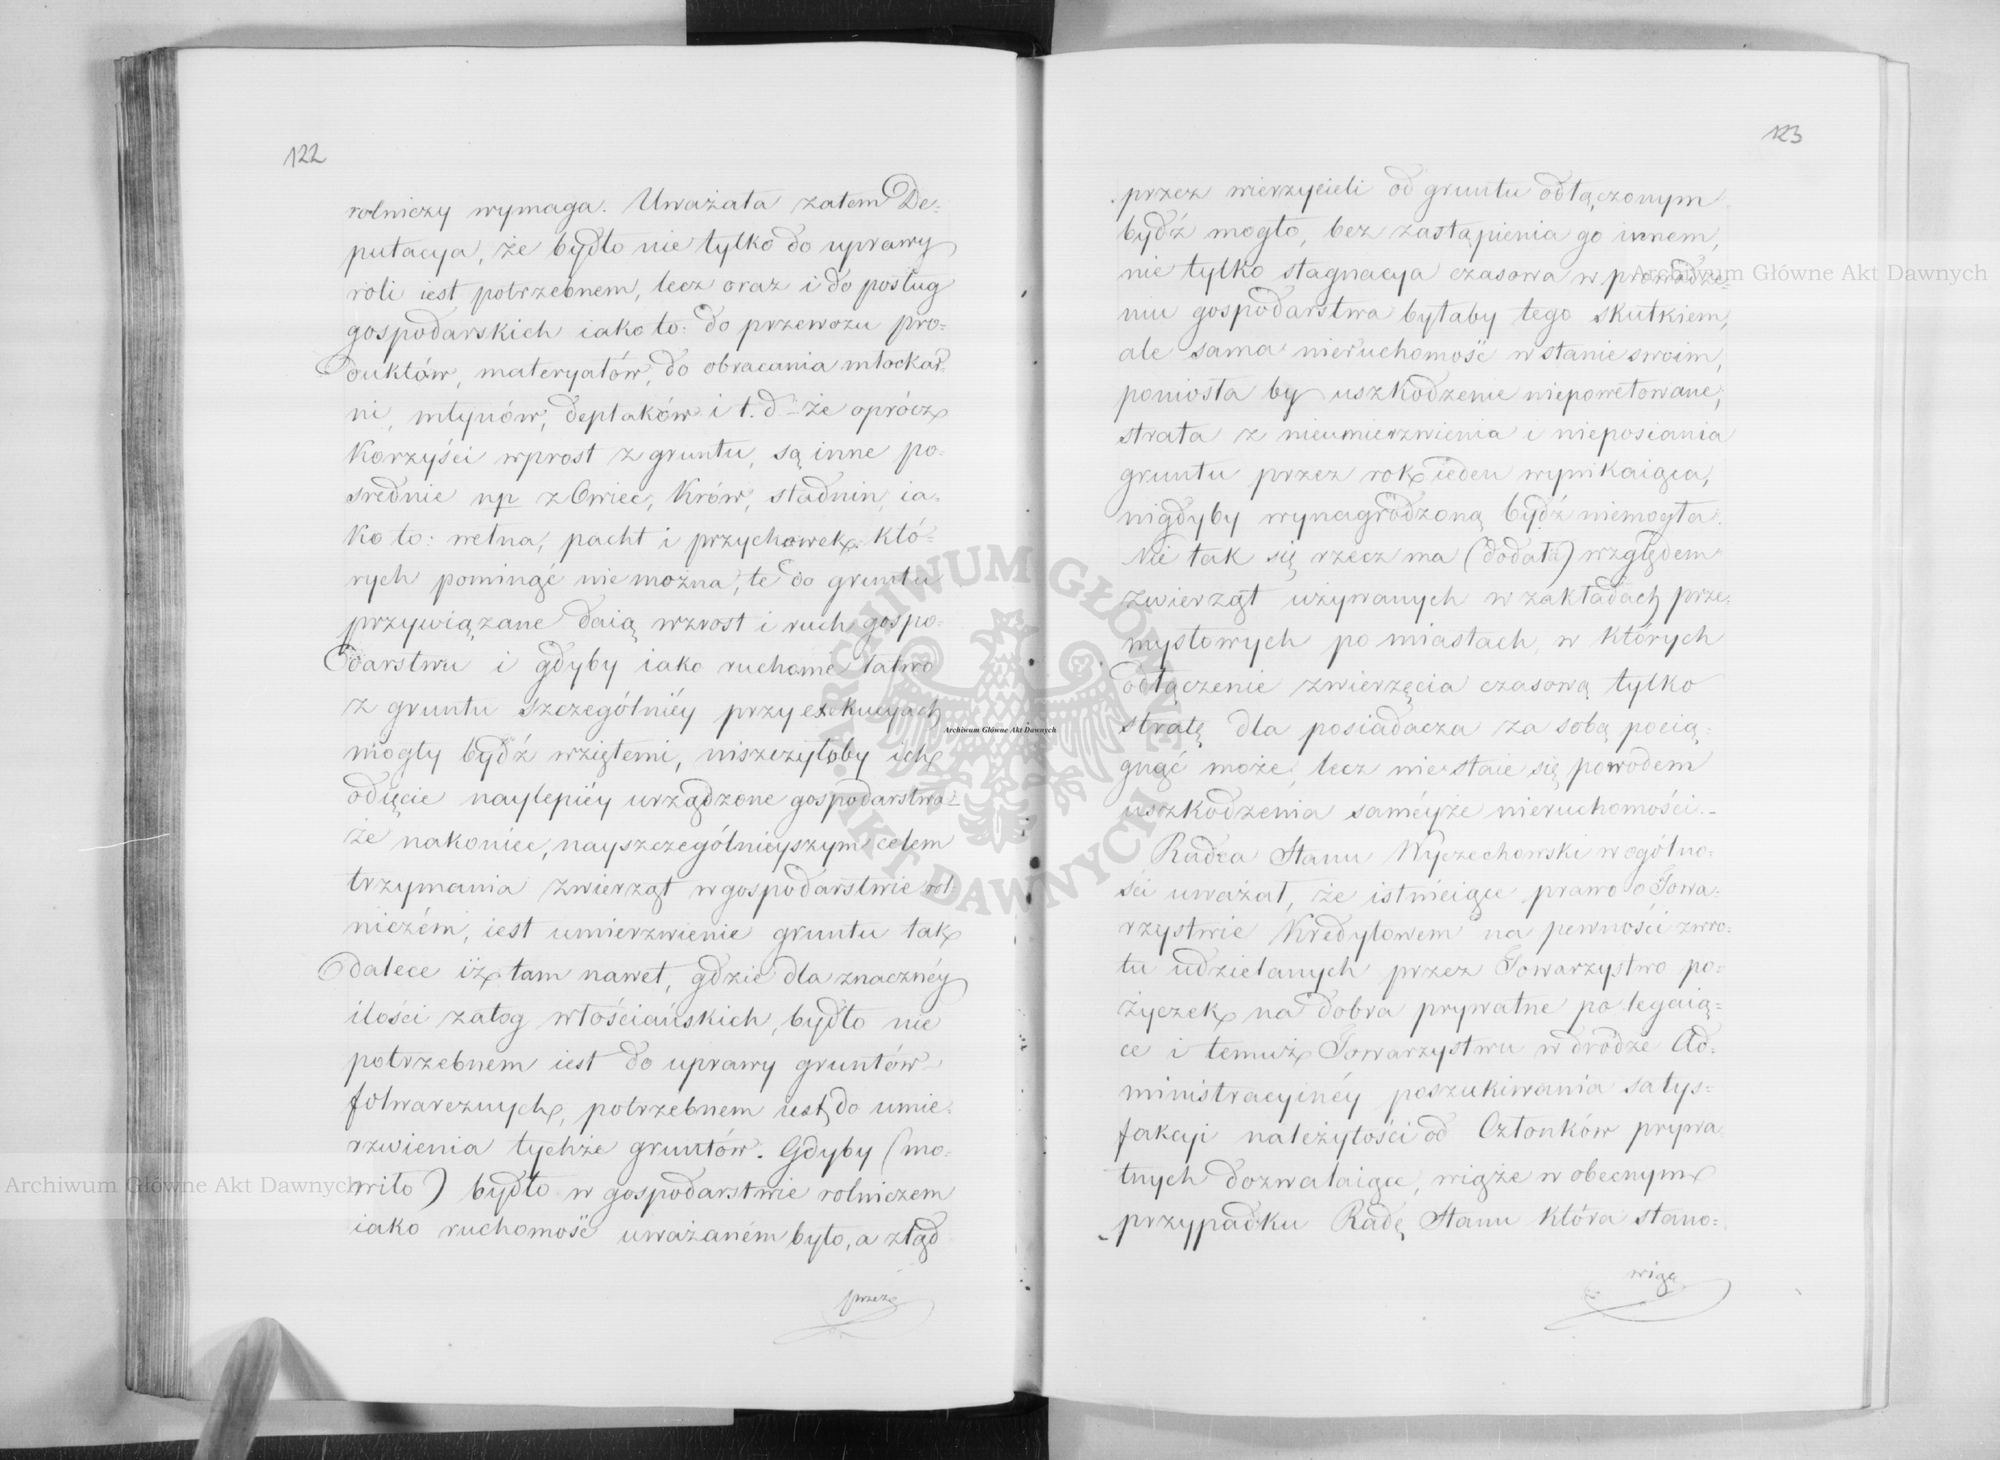 122
rolniczy wymaga. Uważała zatem De=
putacya, że bydło nie tylko do uprawy
roli iest potrzebnem, lecz oraz i do posług
gospodarskich iako to: do przewozu pro=
duktów, materyałów, do obracania młockar=
ni, młynów, deptaków i t. d. – że oprócz
korzyści wprost z gruntu, są inne po=
średnie np z Owiec, Krów, stadnin, ia=
ko to: wełna, pacht i przychowek, któ=
rych pominąć nie można, te do gruntu
przywiązane daią wzrost i ruch gospo=
darstwu i gdyby iako ruchome łatwo
z gruntu szczególniéy przy exekucyach
mogły bydź wziętemi, niszczyłoby ich
odięcie naylepiéy urządzone gospodarstwa –
że nakoniec, nayszczególnieyszym celem
trzymania zwierząt w gospodarstwie rol=
niczém, iest umierzwienie gruntu tak
dalece iż tam nawet, gdzie dla znacznéy
ilości załog włościańskich, bydło nie
potrzebnem iest do uprawy gruntów
folwarcznych, potrzebnem iest do umie=
rzwienia tychże gruntów. Gdyby (mo=
wiło) bydło w gospodarstwie rolniczem
iako ruchomość uważaném było, a ztąd
przez
123
przez wierzycieli od gruntu odłączonym
bydź mogło, bez zastąpienia go innem,
nie tylko stagnacya czasowa w prowadze=
niu gospodarstwa byłaby tego skutkiem,
ale sama nieruchomość w stanie swoim,
poniosła by uszkodzenie niepowetowane,
strata z nieumierzwienia i nieposiania
gruntu przez rok ieden wynikaiąca,
nigdyby wynagrodzoną bydź niemogła.
Nie tak się rzecz ma (dodała) względem
zwierząt używanych w zakładach prze=
mysłowych po miastach, w których
odłączenie zwierzęcia czasową tylko
stratę dla posiadacza za sobą pocią=
gnąć może, lecz niestaie się powodem
uszkodzenia saméyże nieruchomości. –
Radca Stanu Wyczechowski w ogólno=
ści uważał, że istnieiące prawo o Towa=
rzystwie Kredytowem na pewności zwro=
tu udzielanych przez Towarzystwo po=
życzek na dobra prywatne polegaią=
ce i temuż Towarzystwu w drodze Ad=
ministracyinéy poszukiwania satys=
fakcyi należytości od Członków prywa=
tnych dozwalaiące, wiąże w obecnym
przypadku Radę Stanu która stano=
wiąc
Archiwum Główne Akt Dawnych
Archiwum Główne Akt Dawnych
Archiwum Główne Akt Dawnych
ARCHIWUM GŁÓWNE
AKT DAWNYCH